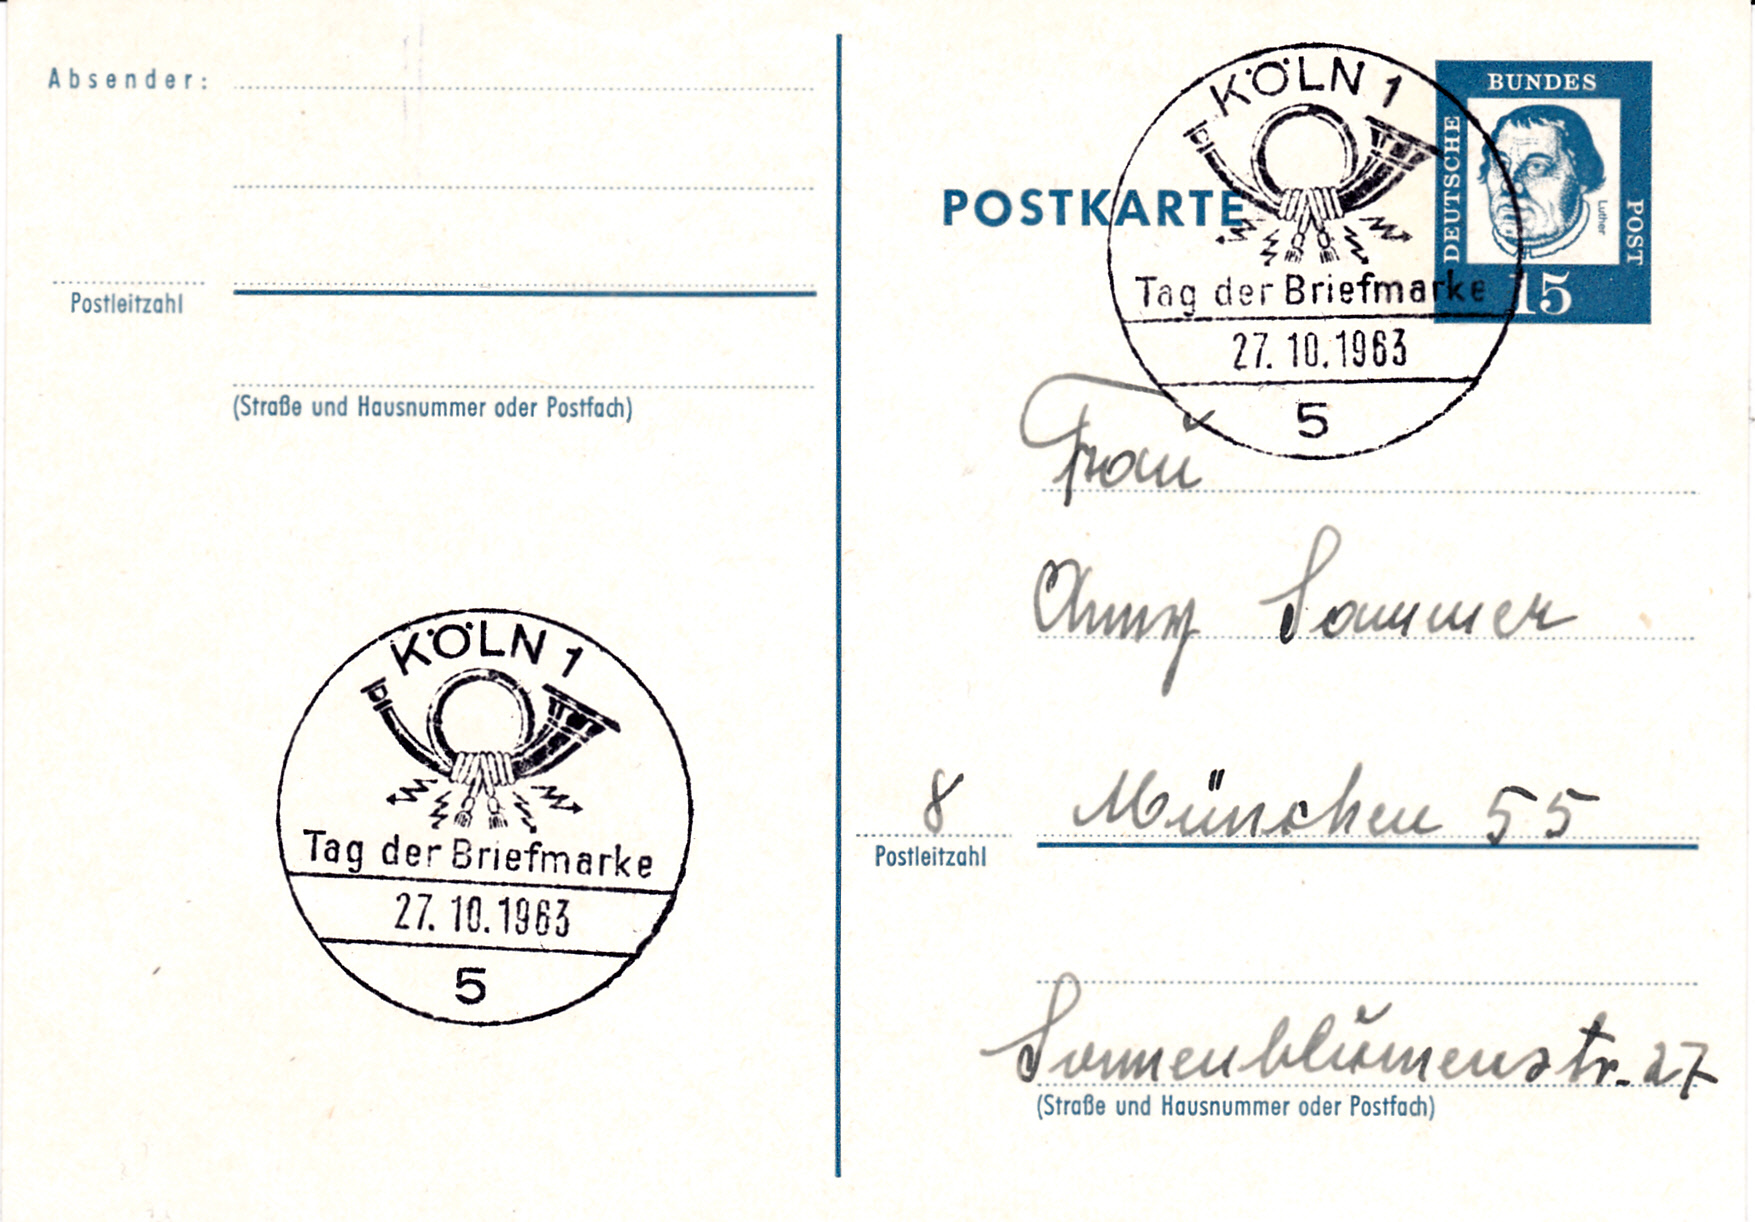 Absender:
Postleitzahl
(Straße und Hausnummer oder Postfach)
KÖLN 1
Tag der Briefmarke
27.10.1963
5
POSTKARTE
KÖLN 1
Tag der Briefmarke
27.10.1963
5
BUNDES
DEUTSCHE
POST
Luther
15
Frau
Anny Sommer
8 München 55
Postleitzahl
Sonnenblumenstr. 27
(Straße und Hausnummer oder Postfach)